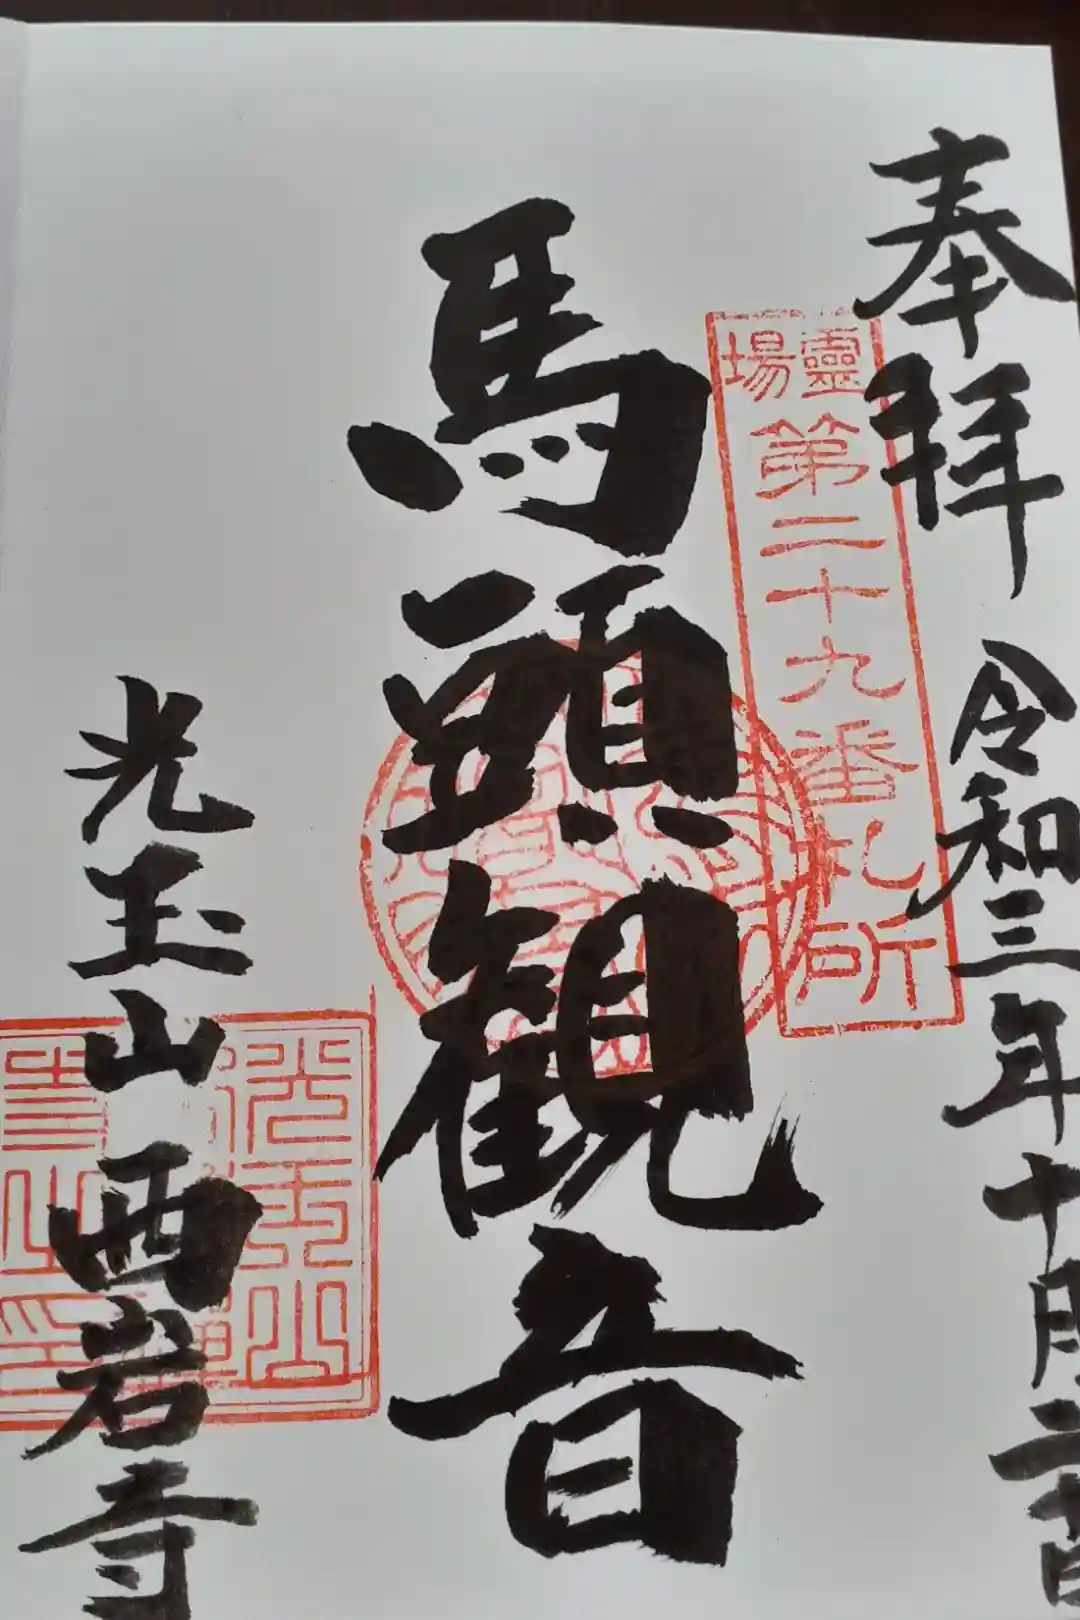 奉拝
令和三年十月二十日
靈場
第二十九番札所
馬頭観音
光玉山西岩寺